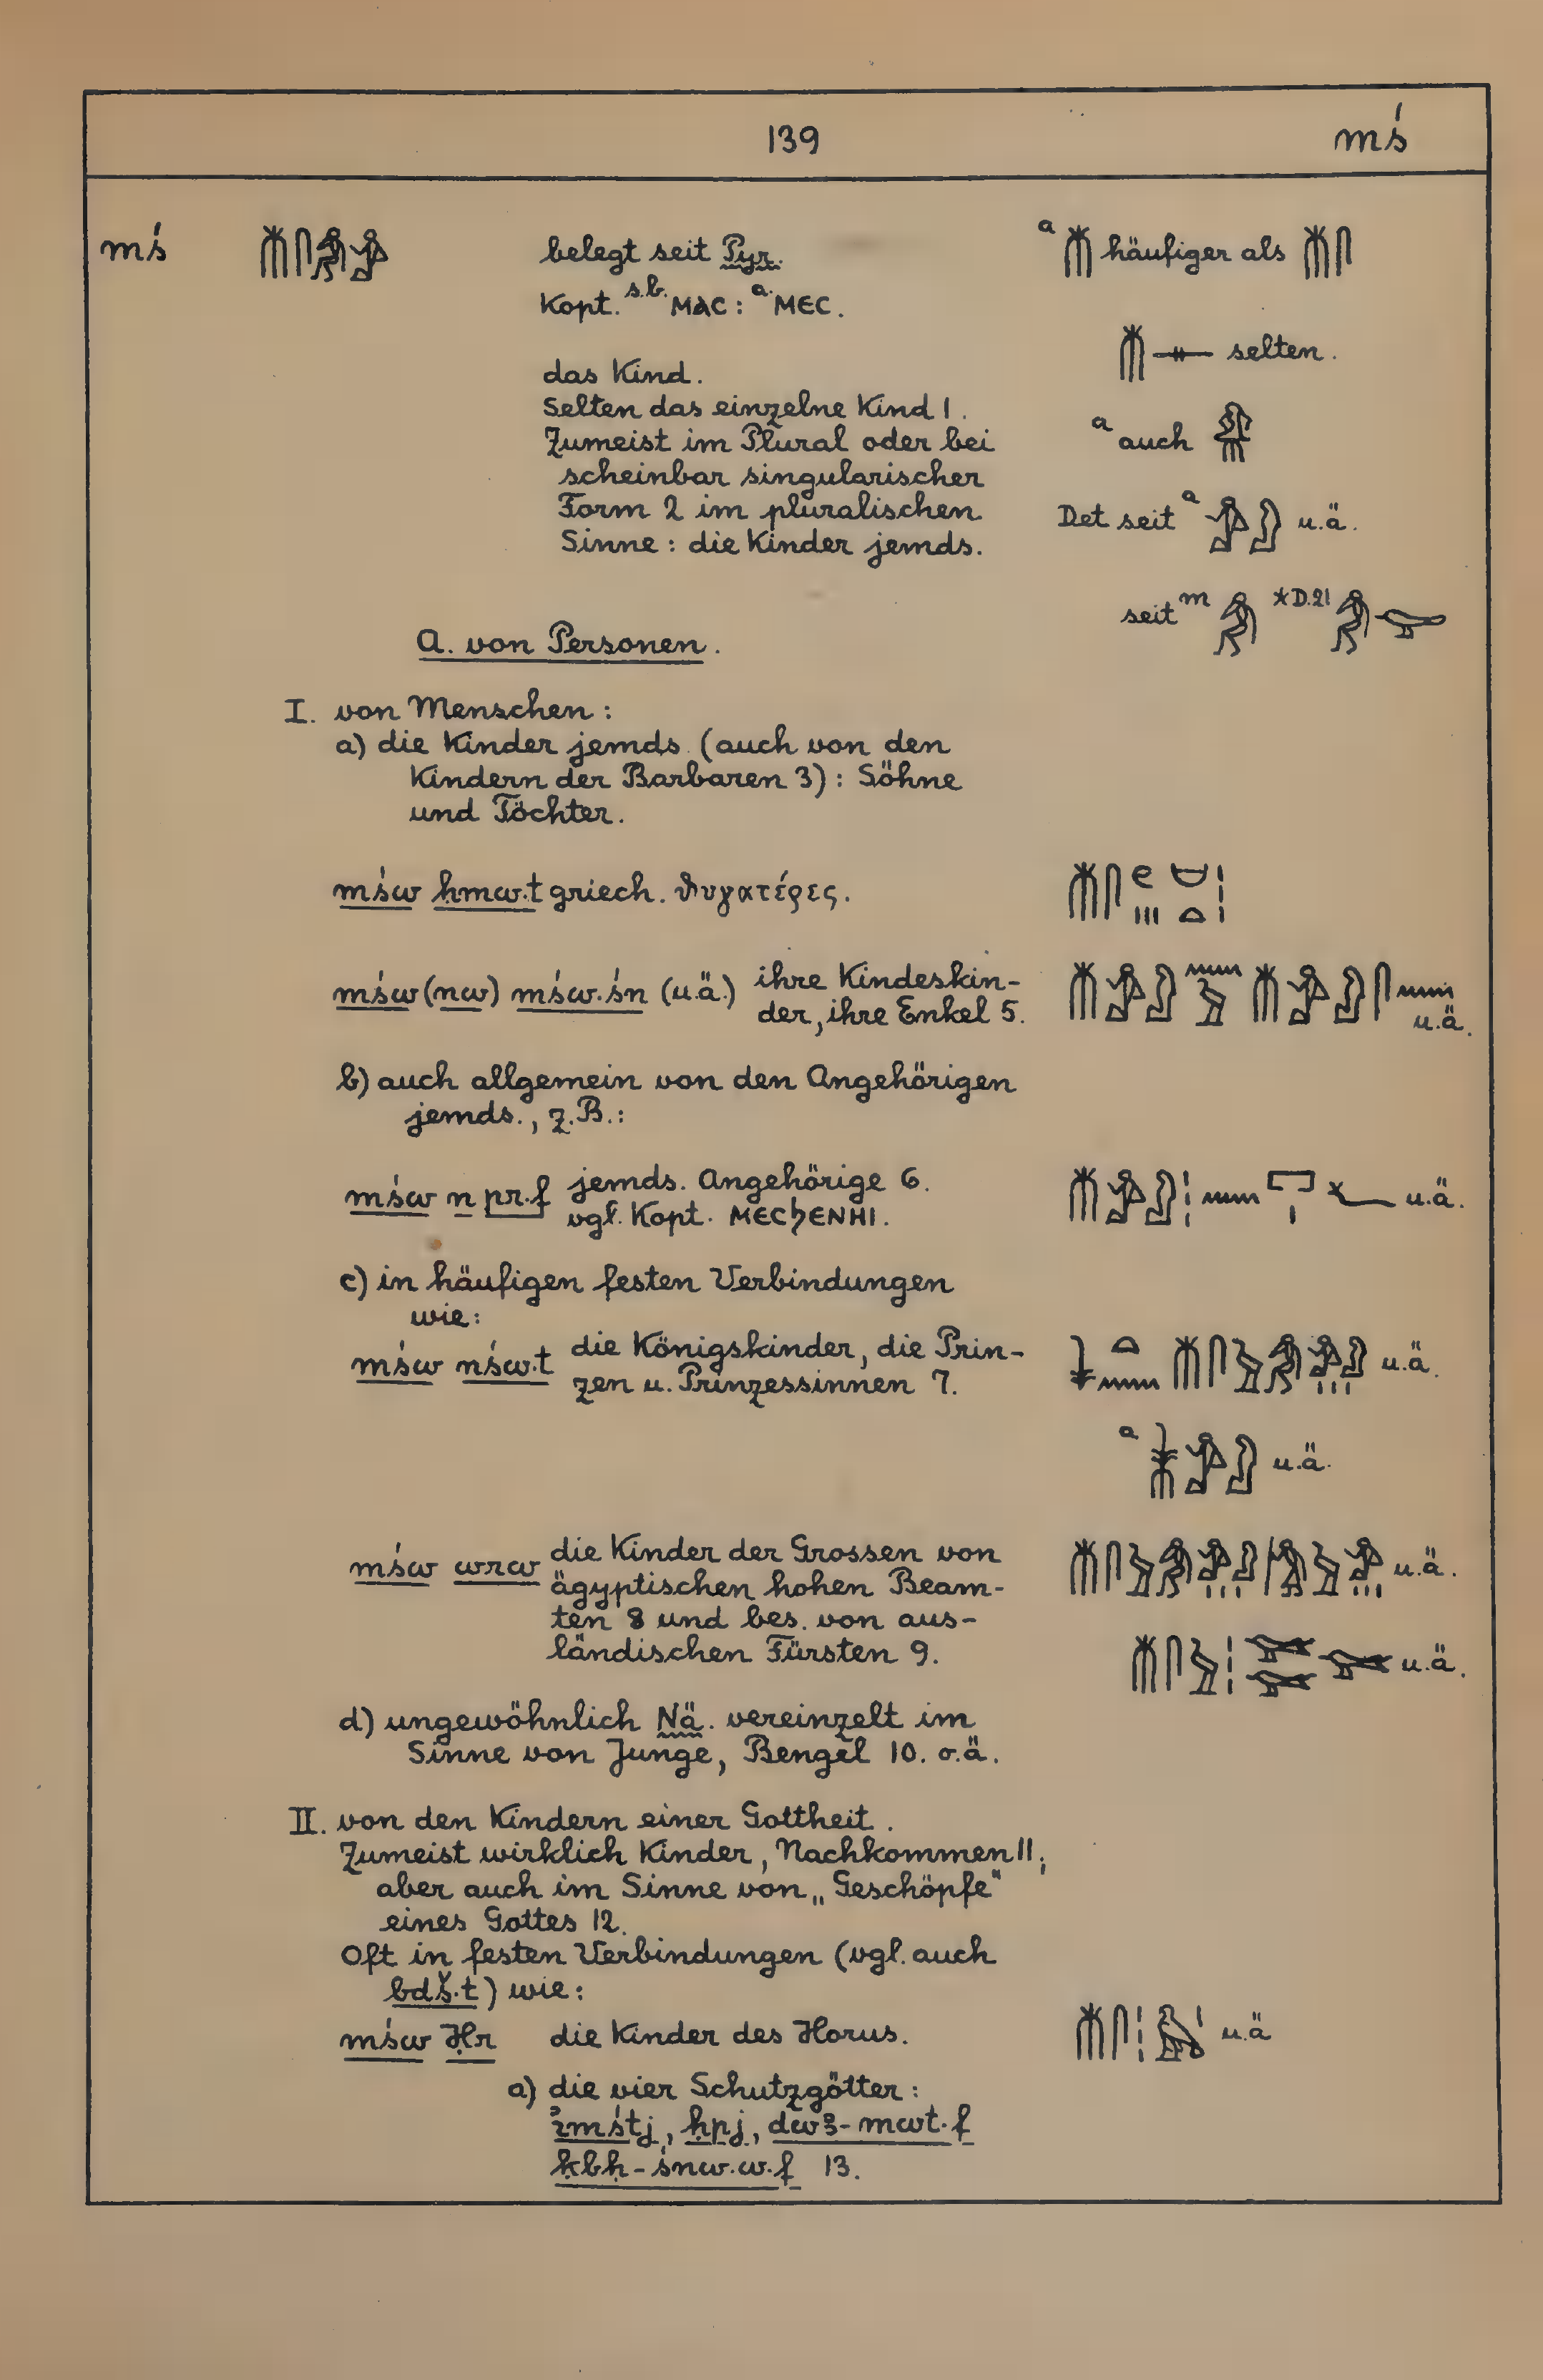 139
mś
mś
belegt seit Pyr.
Kopt. s.b. ⲙⲁⲥ : a. ⲙⲉⲥ.
das Kind.
Selten das einzelne Kind 1.
Zumeist im Plural oder bei
scheinbar singularischer
Form 2 im pluralischen
Sinne : die Kinder jemds.
a 𓄟 häufiger als 𓄟𓋴
𓄟𓊃 selten.
a auch
Det seit a u.ä.
seit m *D.21
A. von Personen.
I. von Menschen :
a) die Kinder jemds. (auch von den
Kindern der Barbaren 3) : Söhne
und Töchter.
mśw ḥmw.t griech. θυγατέρες.
mśw (nw) mśw.śn (u.ä.) ihre Kindeskin-
der, ihre Enkel 5.
u.ä.
b) auch allgemein von den Angehörigen
jemds., z.B.:
mśw n pr.f jemds. Angehörige 6.
vgl. Kopt. ⲙⲉⲥϧⲉⲛⲏⲓ.
u.ä.
c) in häufigen festen Verbindungen
wie:
mśw nśw.t die Königskinder, die Prin-
zen u. Prinzessinnen 7.
u.ä.
a u.ä.
mśw wrw die Kinder der Grossen von
ägyptischen hohen Beam-
ten 8 und bes. von aus-
ländischen Fürsten 9.
u.ä.
u.ä.
d) ungewöhnlich Nä. vereinzelt im
Sinne von Junge, Bengel 10. o.ä.
II. von den Kindern einer Gottheit.
Zumeist wirklich Kinder, Nachkommen 11;
aber auch im Sinne von „Geschöpfe“
eines Gottes 12.
Oft in festen Verbindungen (vgl. auch
bdš.t) wie:
mśw Ḥr die Kinder des Horus.
u.ä
a) die vier Schutzgötter :
ꞽmśtj, ḥpj, dwꜣ-mwt.f
ḳbḥ-śnw.w.f 13.